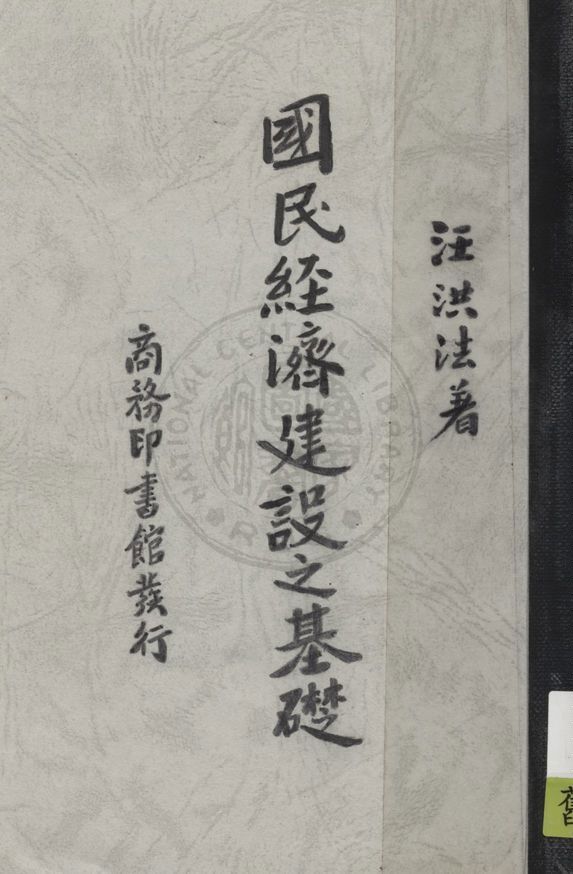 汪洪法著
國民経濟建設之基礎
商務印書館發行
NATIONAL CENTRAL LIBRARY
舊